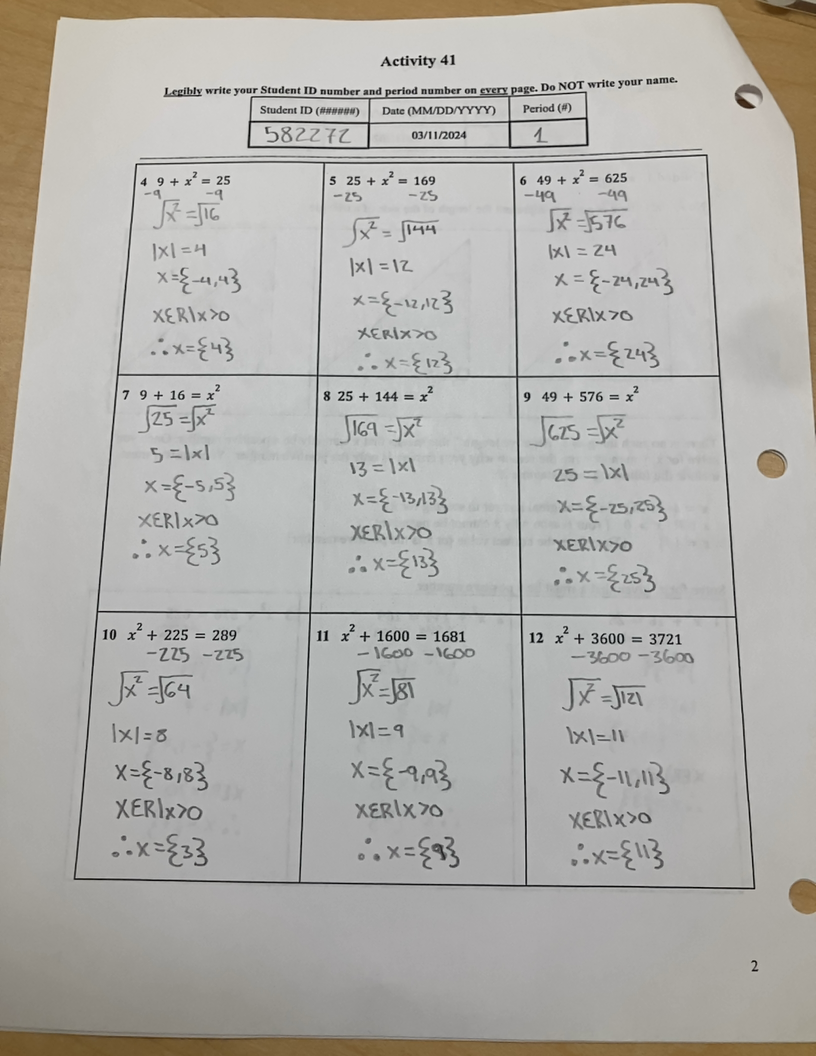 Activity 41
Legibly write your Student ID number and period number on every page. Do NOT write your name.
Student ID (######) Date (MM/DD/YYYY) Period (#)
582272 03/11/2024 1
4 9 + x² = 25
-9 -9
√x² = √16
|x| = 4
x = {-4,4}
xεR|x>0
∴ x = {4}
5 25 + x² = 169
-25 -25
√x² = √144
|x| = 12
x = {-12,12}
xεR|x>0
∴ x = {12}
6 49 + x² = 625
-49 -49
√x² = √576
|x| = 24
x = {-24,24}
xεR|x>0
∴ x = {24}
7 9 + 16 = x²
√25 = √x²
5 = |x|
x = {-5,5}
xεR|x>0
∴ x = {5}
8 25 + 144 = x²
√169 = √x²
13 = |x|
x = {-13,13}
xεR|x>0
∴ x = {13}
9 49 + 576 = x²
√625 = √x²
25 = |x|
x = {-25,25}
xεR|x>0
∴ x = {25}
10 x² + 225 = 289
-225 -225
√x² = √64
|x| = 8
x = {-8,8}
xεR|x>0
∴ x = {3}
11 x² + 1600 = 1681
-1600 -1600
√x² = √81
|x| = 9
x = {-9,9}
xεR|x>0
∴ x = {9}
12 x² + 3600 = 3721
-3600 -3600
√x² = √121
|x| = 11
x = {-11,11}
xεR|x>0
∴ x = {11}
2